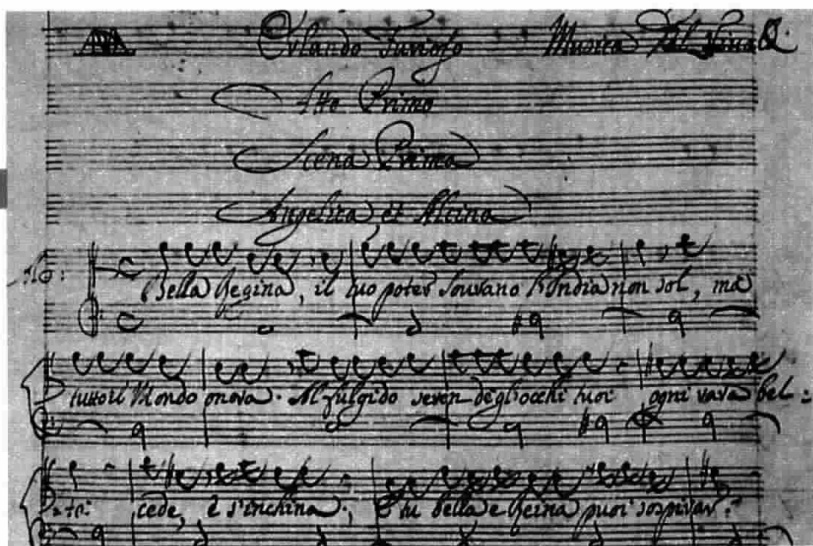 Orlando Furioso Musica Del Viual.
Atto Primo
Scena Prima
Angelica, et Alcina
Bella Regina, il tuo poter Sourano l'India non sol, mà
tutto il Mondo onora. Al fulgido seren degl'occhi tuoi ogni rara bel=
=tà: cede, e s'inchina; E tu bella e Reina puoi sospirar?